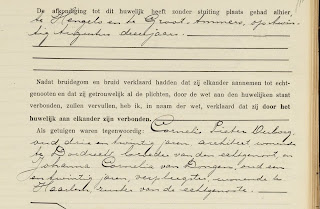 De afkondiging tot dit huwelijk heeft zonder stuiting plaats gehad alhier
te Hengelo en te Groot-Ammers, op twin-
tig Augustus dezes jaars.
Nadat bruidegom en bruid verklaard hadden dat zij elkander aannamen tot echt-
genooten en dat zij getrouwelijk al de plichten, door de wet aan den huwelijken staat
verbonden, zullen vervullen, heb ik, in naam der wet, verklaard dat zij door het
huwelijk aan elkander zijn verbonden.
Als getuigen waren tegenwoordig: Cornelis Pieter
oud drie en twintig jaren, architect wonende
te Dordrecht, van den echtgenoot, en
Johanna Cornelia van Dongen, oud een
en twintig jaren, verpleegster, wonende te
Haarlem, zuster van de echtgenoote.